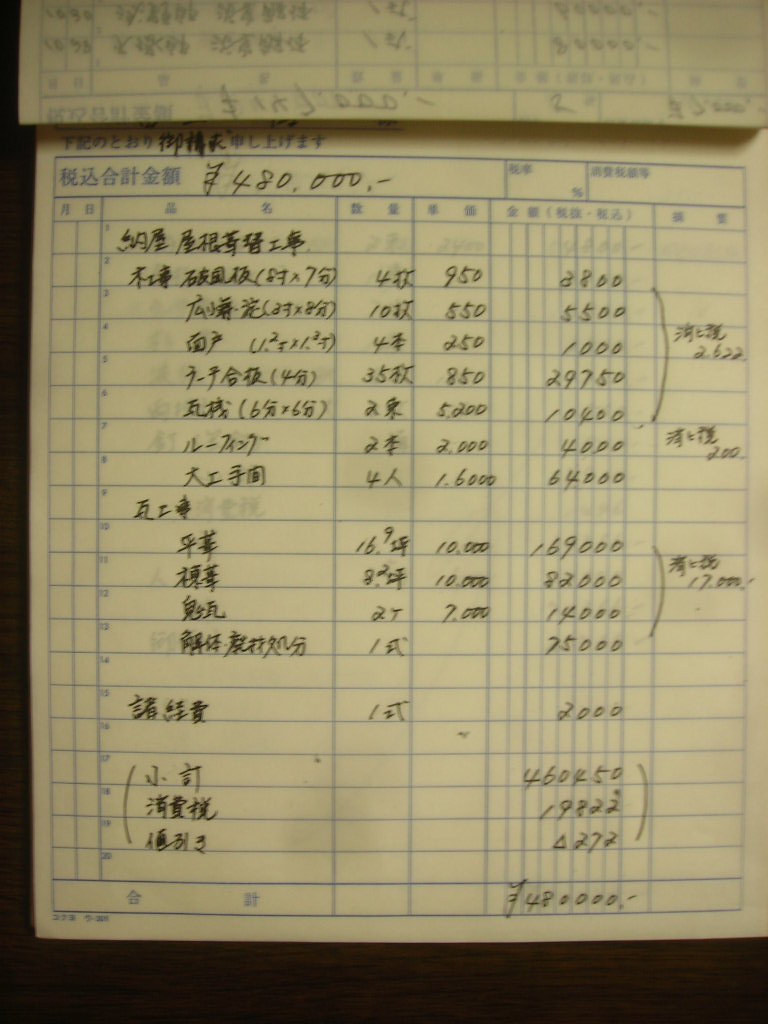 下記のとおり御請求申し上げます
税込合計金額 ¥480,000.- 税率 % 消費税額等
月 日 品 名 数 量 単 価 金 額 (税抜・税込) 摘 要
1 納屋 屋根葺替工事
2 木工事 破風板(8寸×7分) 4枚 950 3800
3 広小舞・淀(3寸×8分) 10枚 550 5500
4 面戸 (1.2寸×1.3寸) 4本 250 1000 消ヒ税 2.622
5 ラーチ合板(4分) 35枚 850 29750
6 瓦桟(6分×6分) 2束 5.200 10400
7 ルーフィング 2本 2.000 4000 消ヒ税 200.
8 大工手間 4人 1.6000 64000
9 瓦工事
10 平葺 16.9坪 10.000 169000
11 棟葺 8.2坪 10.000 82000 消ヒ税 17.000.-
12 鬼瓦 2ケ 7.000 14000
13 解体・廃材処分 1式 75000
14
15 諸経費 1式 2000
16
17 小計 460450
18 消費税 19822
19 値引き △272
20
合 計 ¥480000.-
コクヨ